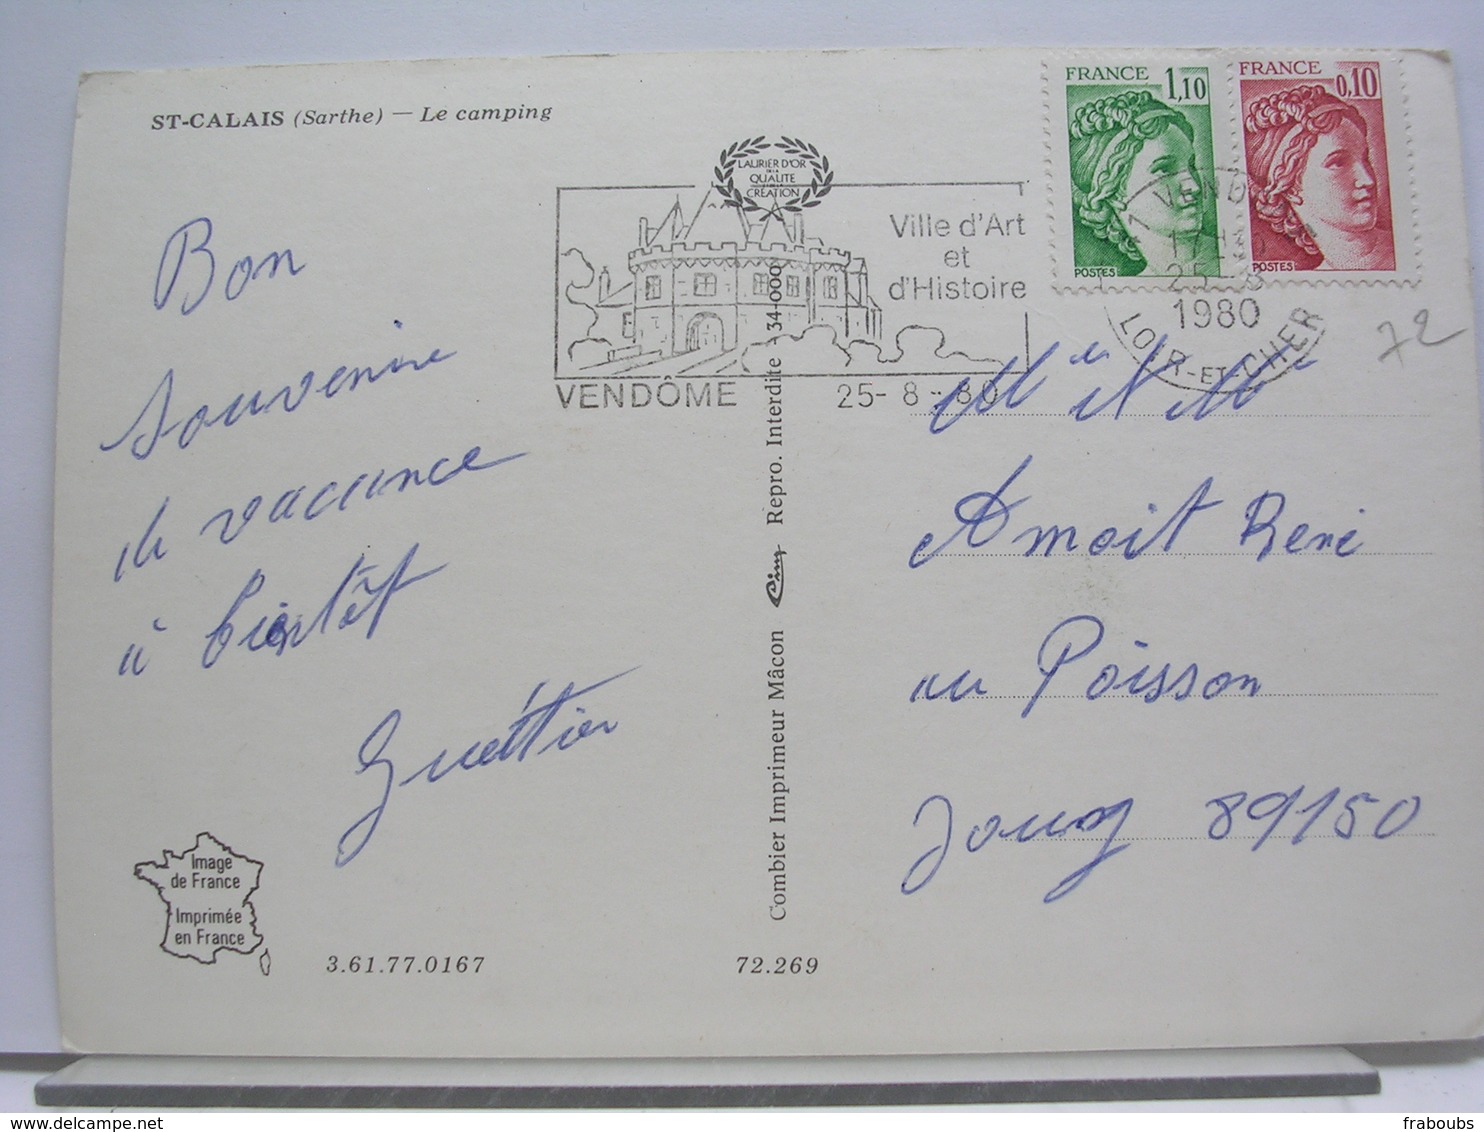 ST-CALAIS (Sarthe) — Le camping
FRANCE 1,10
POSTES
FRANCE 0,10
POSTES
LAURIER D'OR
DE LA
QUALITE
CRÉATION
Ville d'Art
et
d'Histoire
VENDÔME 25-8-80
41 VEND
25-8
1980
LOIR-ET-CHER
72
Bon
souvenire
de vacance
à bientôt
Guettier
Mr et Mme
Amoit René
au Poisson
Jouy 89150
Combier Imprimeur Mâcon Cim Repro. Interdite 34-000
Image
de France
Imprimée
en France
3.61.77.0167
72.269
fraboubs